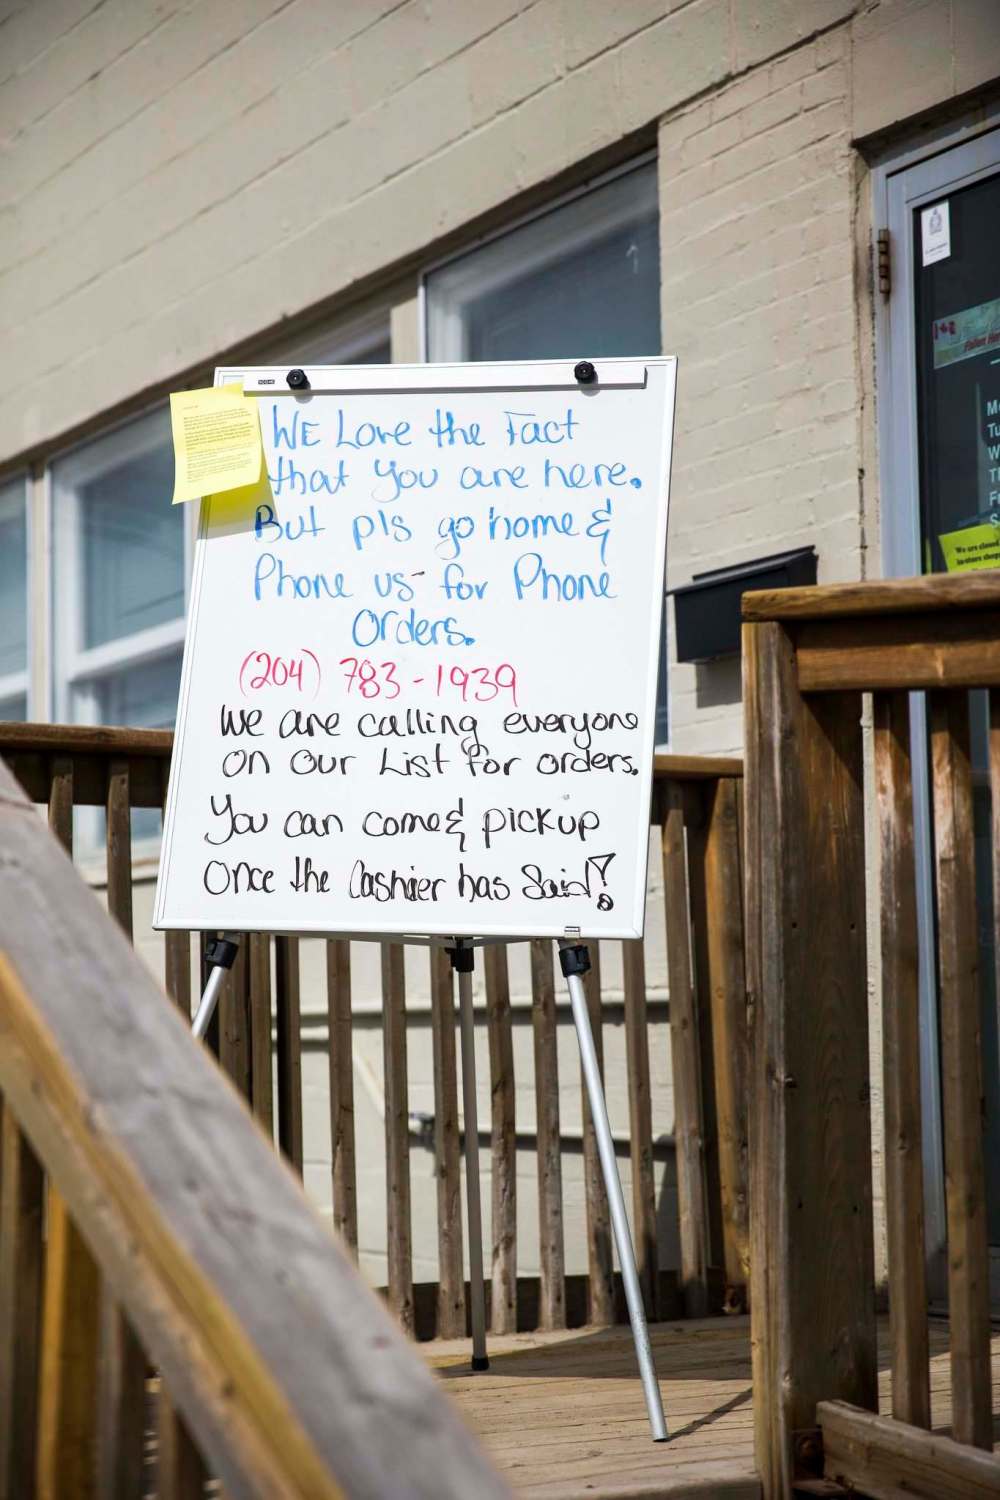 WE Love the Fact
that You are here.
But pls go home &
Phone us for Phone
Orders.
(204) 783-1939
We are calling everyone
on our List for orders.
You can come & pickup
Once the Cashier has Said!
We are closed